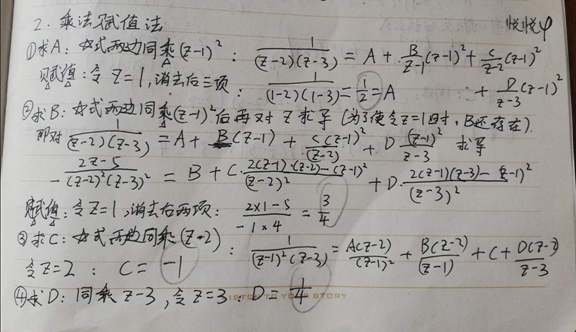 2. 乘法赋值法 悦悦φ
①求A: 女式两边同乘(z-1)²: 1/((z-2)(z-3)) = A + B/(z-1)(z-1)² + C/(z-2)(z-1)²
赋值: 令 z=1, 消去后三项: 1/((1-2)(1-3)) = 1/2 = A + D/(z-3)(z-1)²
②求B: 女式两边同乘(z-1)²后再对 z 求导 (为了使令z=1时, B还存在).
即对 1/((z-2)(z-3)) = A + B(z-1) + C(z-1)²/(z-2) + D (z-1)²/(z-3) 求导
-(2z-5)/((z-2)²(z-3)²) = B + C·(2(z-1)(z-2)-(z-1)²)/(z-2)² + D·(2(z-1)(z-3)-(z-1)²)/(z-3)²
赋值: 令z=1, 消去后两项: -(2×1-5)/(1×4) = 3/4
③求C: 女式两边同乘(z-2): 1/((z-1)²(z-3)) = A(z-2)/(z-1)² + B(z-2)/(z-1) + C + D(z-2)/(z-3)
令z=2: C = -1
④求D: 同乘 z-3, 令 z=3. D = 1/4
STORY